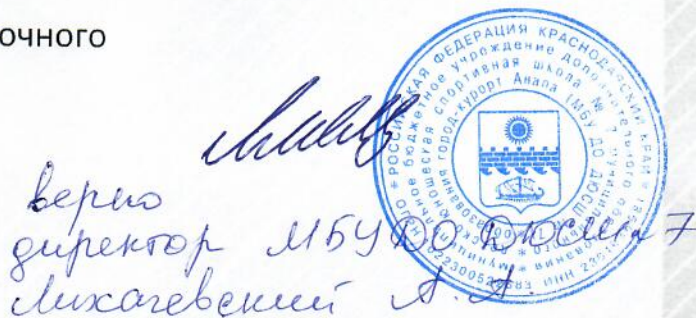 очного
верно
директор МБУ ДО ДЮСШ №7
Лихачевский А. А.
РОССИЙСКАЯ ФЕДЕРАЦИЯ КРАСНОДАРСКИЙ КРАЙ
бюджетное учреждение дополнительного
спортивная школа № 7
город-курорт Анапа (МБУ ДО ДЮСШ
ИНН